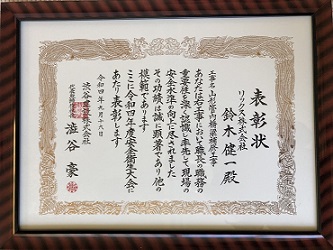 表彰状
リックス株式会社
鈴木健一殿
工事名 山杉管内橋梁補修工事
あなたは右工事において職長の職務の
重要性を深く認識し率先して現場の
安全水準の向上に尽くされました
その功績は誠に顕著であり他の
模範であります
ここに令和四年度安全衛生大会に
あたり表彰します
令和四年九月十六日
渋谷建設株式会社
代表取締役社長
澁谷豪